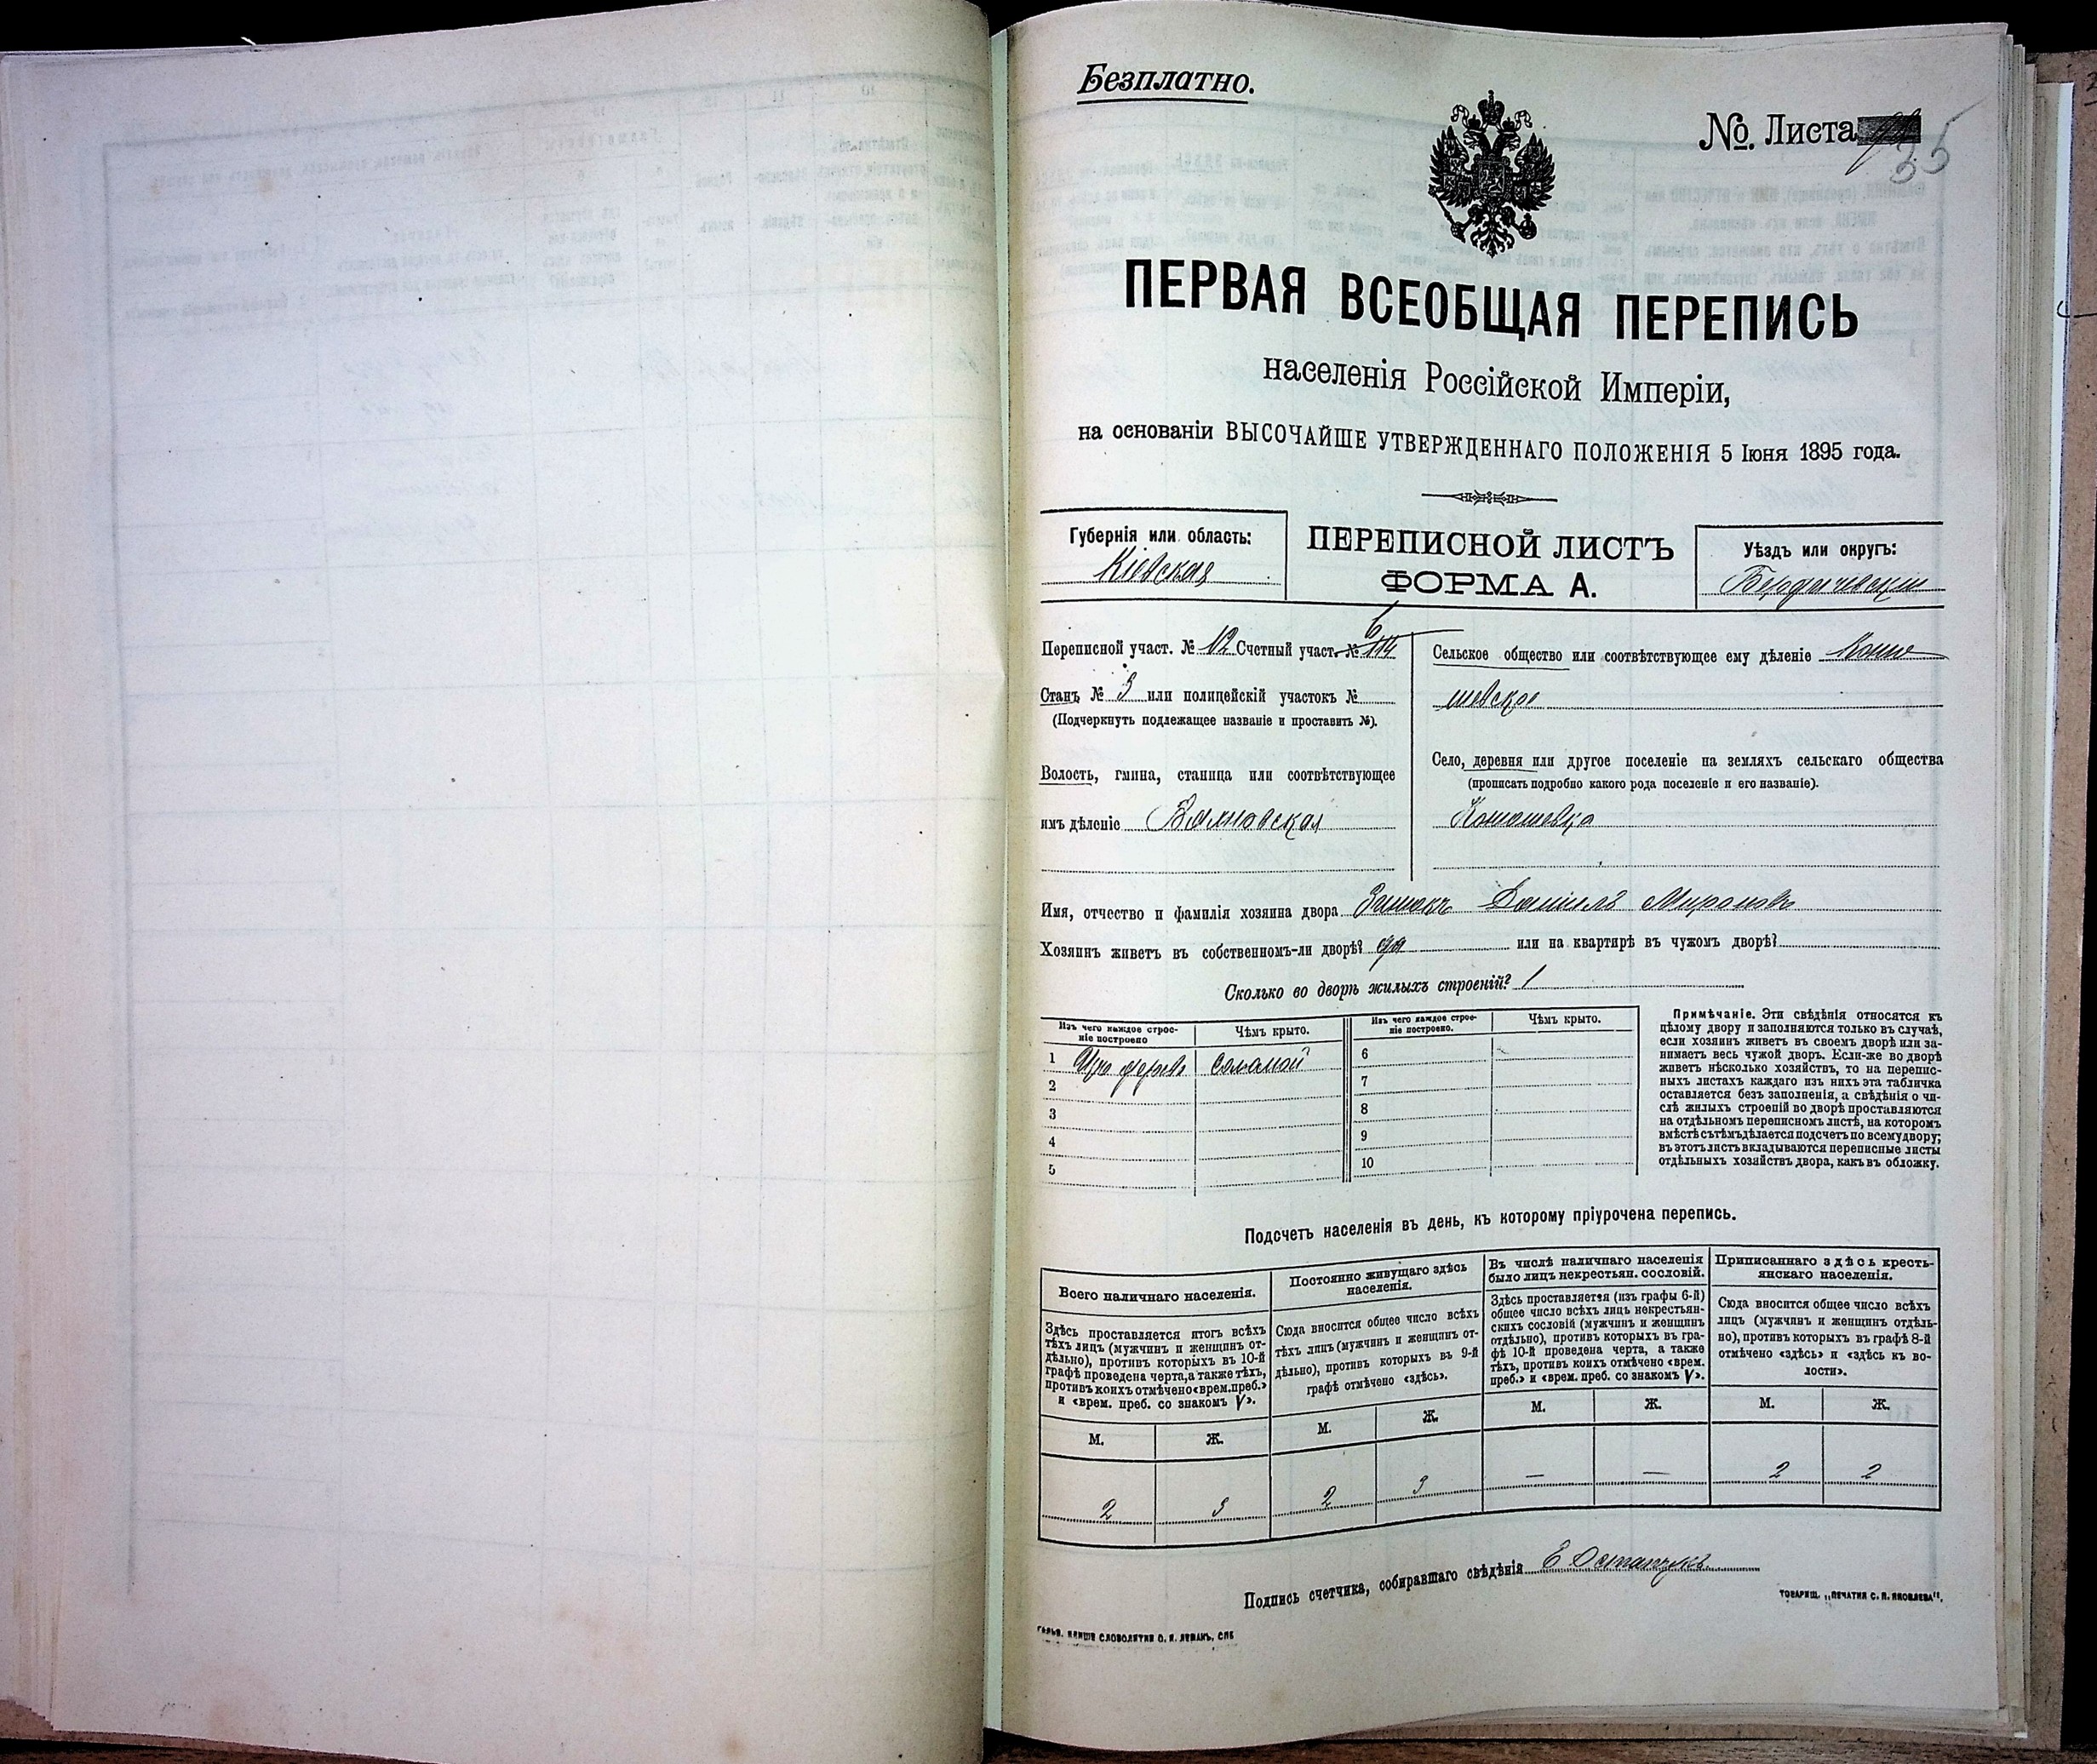 Безплатно.
№ Листа 35
ПЕРВАЯ ВСЕОБЩАЯ ПЕРЕПИСЬ
населенія Россійской Имперіи,
на основаніи ВЫСОЧАЙШЕ УТВЕРЖДЕННАГО ПОЛОЖЕНІЯ 5 Іюня 1895 года.
Губернія или область:
Кіевская
ПЕРЕПИСНОЙ ЛИСТЪ
ФОРМА А.
Уѣздъ или округъ:
Бердичевскій
Переписной участ. № 12 Счетный участ. № 114 6
Станъ № 3 или полицейскій участокъ №
(Подчеркнуть подлежащее названіе и проставить №).
Волость, гмина, станица или соотвѣтствующее
имъ дѣленіе
Сельское общество или соотвѣтствующее ему дѣленіе
Село, деревня или другое поселеніе на земляхъ сельскаго общества
(прописать подробно какого рода поселеніе и его названіе).
Имя, отчество и фамилія хозяина двора Даніилъ Мироновъ
Хозяинъ живетъ въ собственномъ-ли дворѣ? да или на квартирѣ въ чужомъ дворѣ?
Сколько во дворѣ жилыхъ строеній? 1
Изъ чего каждое строе-
ніе построено
Чѣмъ крыто.
Изъ чего каждое строе-
ніе построено.
Чѣмъ крыто.
1 Изъ дерева соломой
2
3
4
5
6
7
8
9
10
Примѣчаніе. Эти свѣдѣнія относятся къ
цѣлому двору и заполняются только въ случаѣ,
если хозяинъ живетъ въ своемъ дворѣ или за-
нимаетъ весь чужой дворъ. Если-же во дворѣ
живетъ нѣсколько хозяйствъ, то на перепис-
ныхъ листахъ каждаго изъ нихъ эта табличка
оставляется безъ заполненія, а свѣдѣнія о чи-
слѣ жилыхъ строеній во дворѣ проставляются
на отдѣльномъ переписномъ листѣ, на которомъ
вмѣстѣ съ тѣмъ дѣлается подсчетъ по всему двору;
въ этотъ листъ вкладываются переписные листы
отдѣльныхъ хозяйствъ двора, какъ въ обложку.
Подсчетъ населенія въ день, къ которому пріурочена перепись.
Всего наличнаго населенія.
Здѣсь проставляется итогъ всѣхъ
тѣхъ лицъ (мужчинъ и женщинъ от-
дѣльно), противъ которыхъ въ 10-й
графѣ проведена черта, а также тѣхъ,
противъ коихъ отмѣчено «врем. преб.»
и «врем. преб. со знакомъ V».
М. Ж.
2 3
Постоянно живущаго здѣсь
населенія.
Сюда вносится общее число всѣхъ
тѣхъ лицъ (мужчинъ и женщинъ от-
дѣльно), противъ которыхъ въ 9-й
графѣ отмѣчено «здѣсь».
М. Ж.
2 3
Въ числѣ наличнаго населенія
было лицъ некрестьян. сословій.
Здѣсь проставляется (изъ графы 6-й)
общее число всѣхъ лицъ некрестьян-
скихъ сословій (мужчинъ и женщинъ
отдѣльно), противъ которыхъ въ гра-
фѣ 10-й проведена черта, а также
тѣхъ, противъ коихъ отмѣчено «врем.
преб.» и «врем. преб. со знакомъ V».
М. Ж.
— —
Приписаннаго здѣсь кресть-
янскаго населенія.
Сюда вносится общее число всѣхъ
лицъ (мужчинъ и женщинъ отдѣль-
но), противъ которыхъ въ графѣ 8-й
отмѣчено «здѣсь» и «здѣсь къ во-
лости».
М. Ж.
2 2
Подпись счетчика, собиравшаго свѣдѣнія Е Остапчукъ
ТОВАРИЩ. „ПЕЧАТНЯ С. П. ЯКОВЛЕВА".
КЛИШЕ СЛОВОЛИТНИ О. И. ЛЕМАНЪ, СПБ